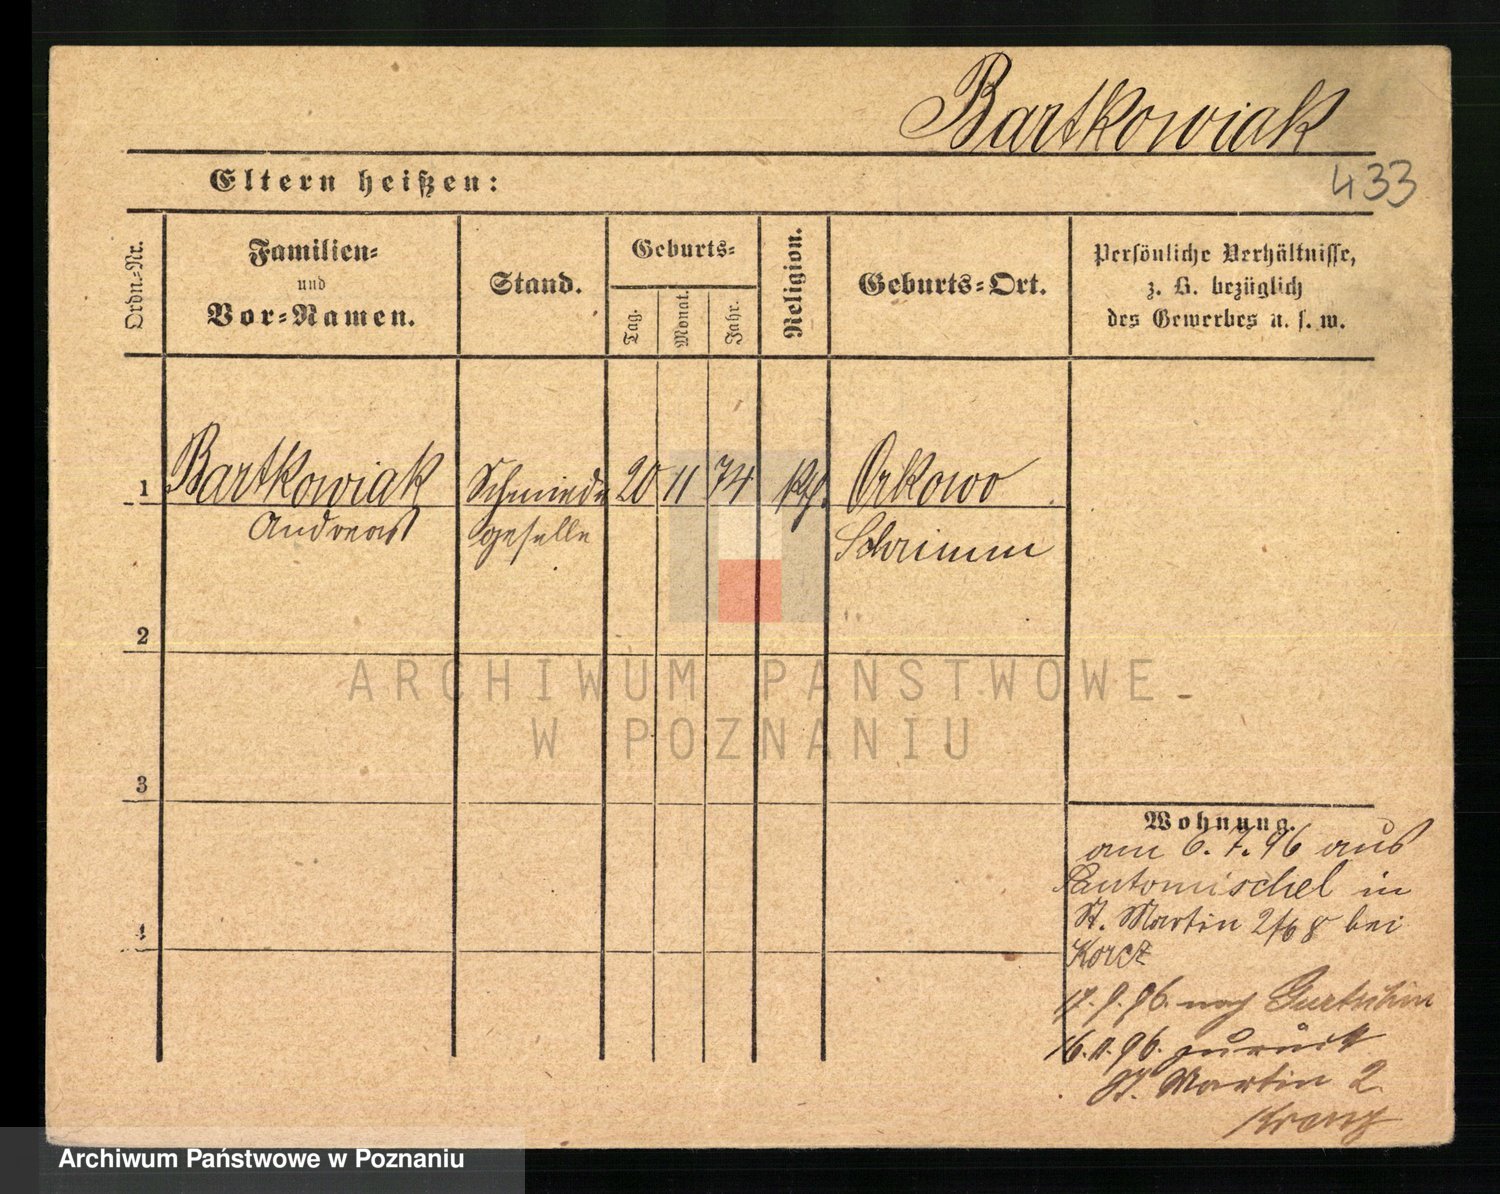 Bartkowiak
433
Eltern heißen:
Ordn.-Nr.
Familien-
und
Vor-Namen.
Stand.
Geburts-
Tag.
Monat.
Jahr.
Religion.
Geburts-Ort.
Persönliche Verhältnisse,
z. B. bezüglich
des Gewerbes u. s. w.
1 Bartkowiak Schmiede 20 11 74 kth. Orkowo
Andreas geselle Schrimm
2
3
4
Wohnung.
am 6.7.96 aus
Santomischel in
St. Martin 2/68 bei
Korcz
17.9.96. nach Gurtschin
16.11.96. zurück
St. Martin 2
ARCHIWUM PAŃSTWOWE
W POZNANIU
Archiwum Państwowe w Poznaniu